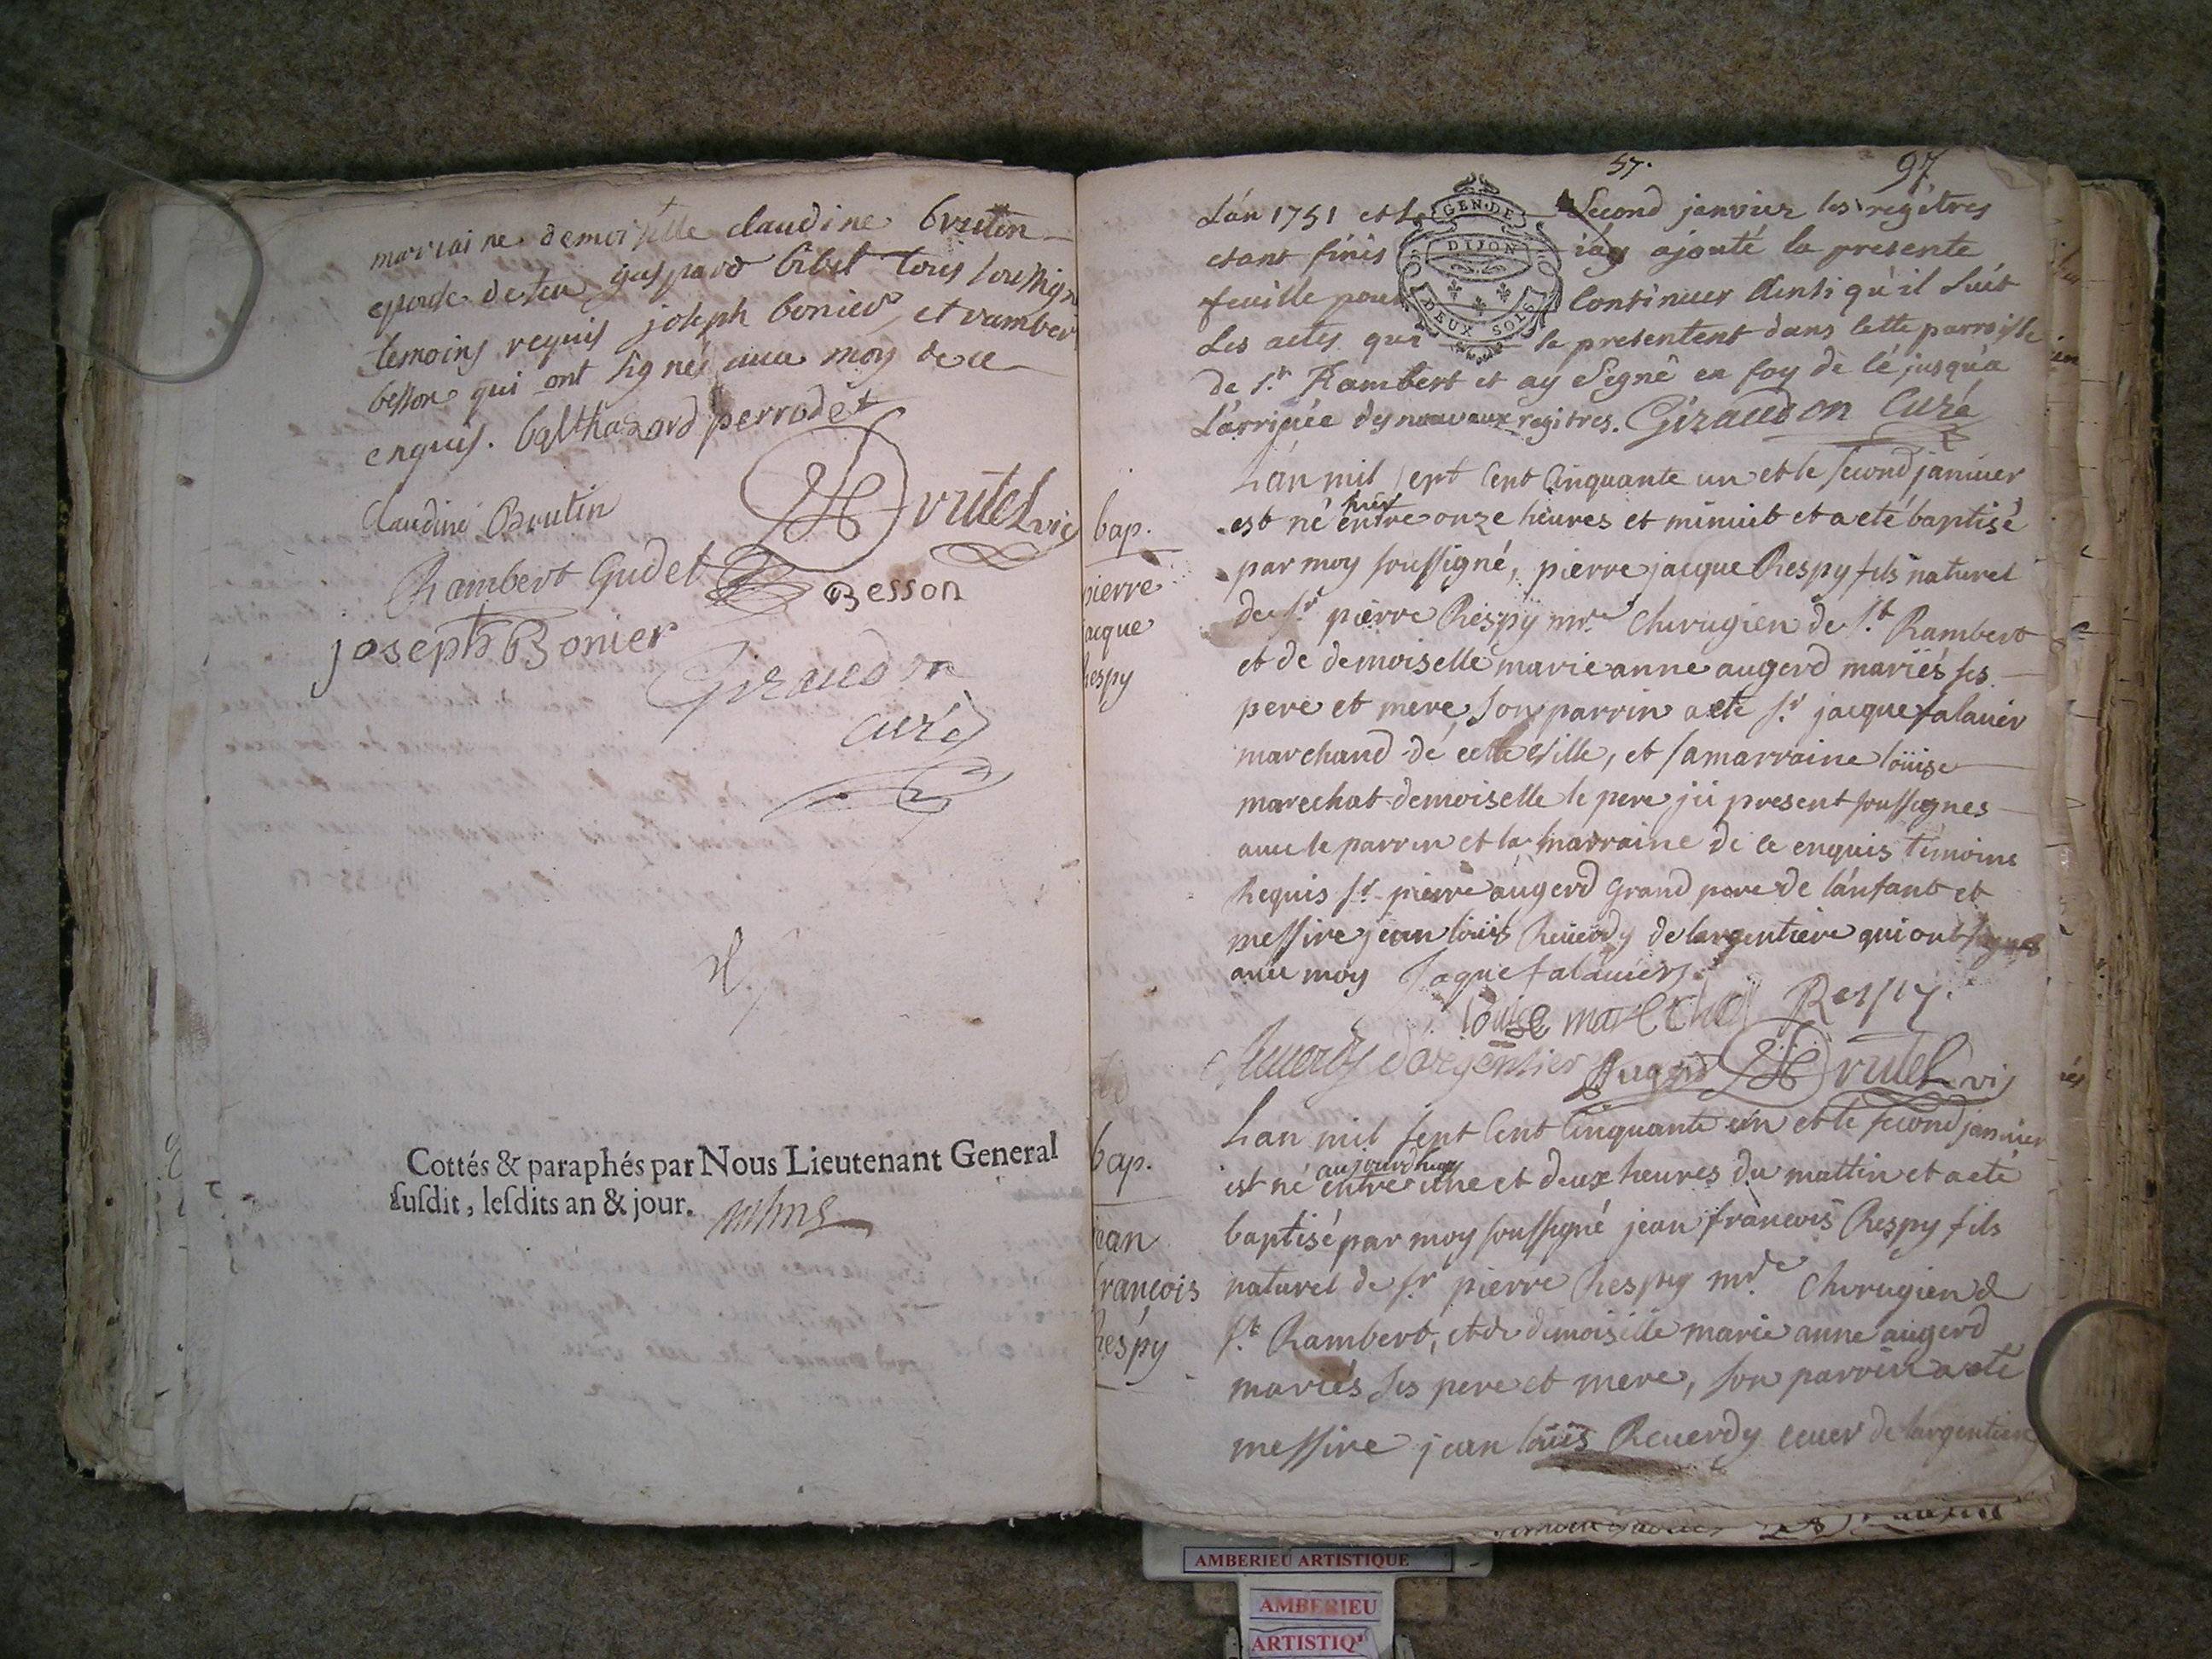 marraine demoiselle claudine brutin
epouse de feu gaspard bibet tous soussigne
temoins requis joseph bonier et rambert
besson qui ont signés avec moy de ce
enquis. balthazard perrodet
Drutel vic
claudine Brutin
Rambert Gudet
Besson
joseph Bonier
Giraudon
curé
Cottés & paraphés par Nous Lieutenant General
susdit, lesdits an & jour.
57.
97
L'an 1751 et le Second janvier les regêtres
GEN·DE
DIJON
DEUX SOLS
etant finis j'ay ajouté la presente
feuille pour Continuer Ainsi qu'il suit
Les actes qui se presentent dans cette parroisse
de St. Rambert et ay Signé en foy de ce jusqu'a
L'arrivée des nouveaux regitres. Giraudon Curé
bap.
pierre
jacque
Respy
Lan mil sept cent cinquante un et le second janvier
hier
est né entre onze heures et minuit et a eté baptisé
par moy soussigné, pierre jacque Respy fils naturel
de sr. pierre Respy mre. chirugien de St. Rambert
et de demoiselle marie anne augerd mariés ses
pere et mere, son parrin a eté sr. jacque falavier
marchand de cette ville, et sa marraine loüise
marechat demoiselle le pere ici present soussignes
avec le parrin et la marraine de ce enquis temoins
Requis sr. pierre augerd grand pere de l'anfant et
messire jean loüis Reverdy de largentiere qui ont signes
avec moy Jaque falavier
loüise marechat Respy.
Reverdy dargentier Augerd Drutel vic
bap.
jean
francois
Respy
Lan mil sept cent cinquante un et le second janvier
aujourdhuy
est né entre une et deux heures du mattin et a eté
baptisé par moy soussigné jean francois Respy fils
naturel de sr. pierre Respy mre. chirugien de
St. Rambert, et de demoiselle marie anne augerd
mariés ses pere et mere, son parrin a eté
messire jean loüis Reverdy ecuer de largentiere
AMBERIEU ARTISTIQUE
AMBERIEU
ARTISTIQ